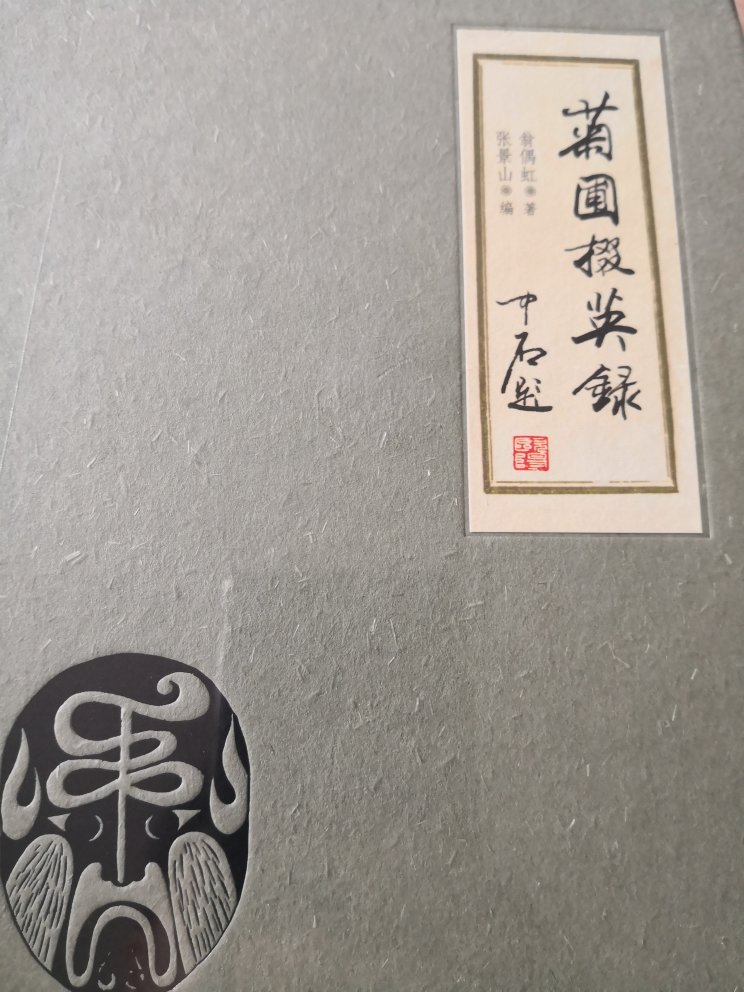 菊圃掇英録
翁偶虹 著
张景山 编
中石题